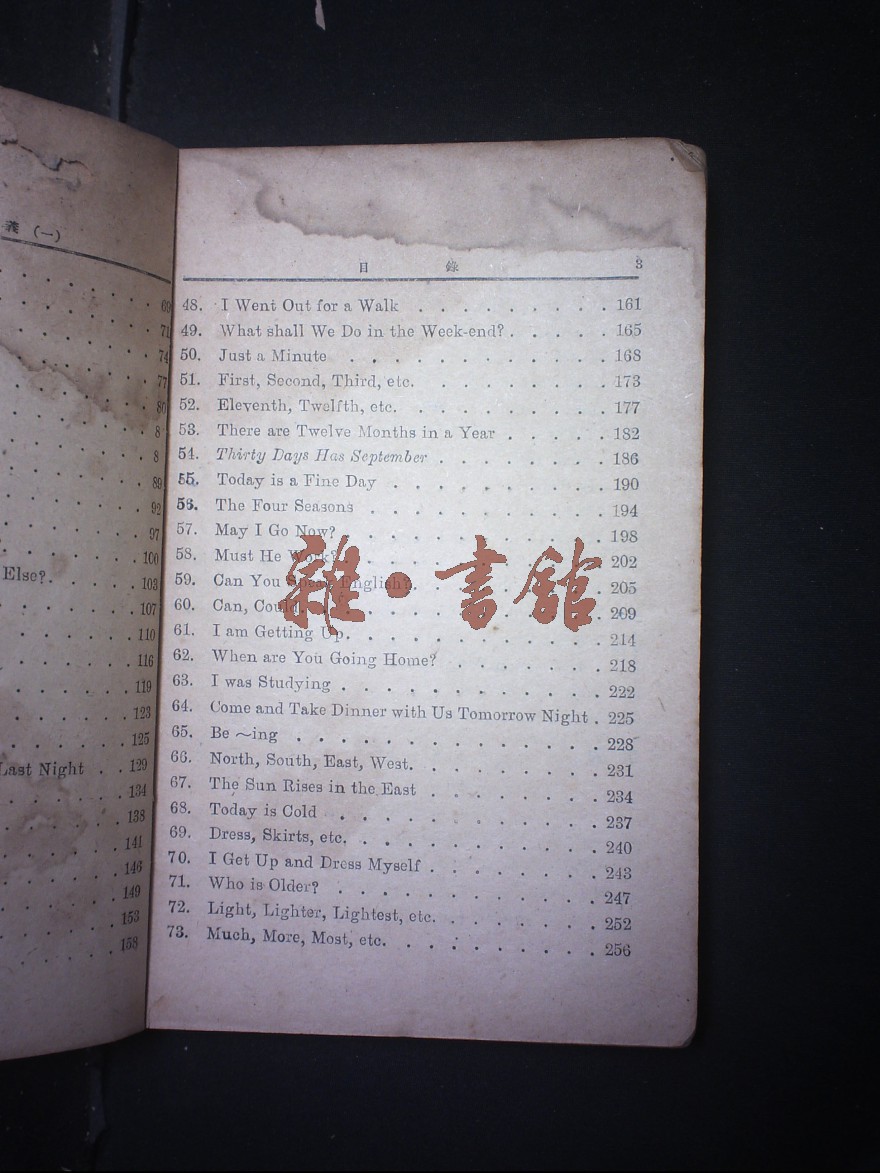 義 (一)
69
71
74
77
80
8
8
89
92
97
100
Else? . . . . . 103
107
110
116
119
123
125
Last Night . . 129
134
138
141
146
149
153
158
目 錄 3
48. I Went Out for a Walk . . . . . . . . 161
49. What shall We Do in the Week-end? . . . . . 165
50. Just a Minute . . . . . . . . . . . 168
51. First, Second, Third, etc. . . . . . . . . 173
52. Eleventh, Twelfth, etc. . . . . . . . . 177
53. There are Twelve Months in a Year . . . . . 182
54. Thirty Days Has September . . . . . . . 186
55. Today is a Fine Day . . . . . . . . . 190
56. The Four Seasons . . . . . . . . . . 194
57. May I Go Now? . . . . . . . . . . 198
58. Must He Work? . . . . . . . . . . 202
59. Can You Speak English? . . . . . . . . 205
60. Can, Could . . . . . . . . . . . 209
61. I am Getting Up. . . . . . . . . . . 214
62. When are You Going Home? . . . . . . . 218
63. I was Studying . . . . . . . . . . . 222
64. Come and Take Dinner with Us Tomorrow Night . 225
65. Be ～ing . . . . . . . . . . . . . 228
66. North, South, East, West. . . . . . . . . 231
67. The Sun Rises in the East . . . . . . . . 234
68. Today is Cold . . . . . . . . . . . 237
69. Dress, Skirts, etc. . . . . . . . . . . 240
70. I Get Up and Dress Myself . . . . . . . . 243
71. Who is Older? . . . . . . . . . . . 247
72. Light, Lighter, Lightest, etc. . . . . . . . 252
73. Much, More, Most, etc. . . . . . . . . 256
雜・書館